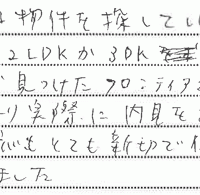 物件を探してい
2LDKか3DK
見つけたフロンティア
実際に内見を
とても親切で
ました